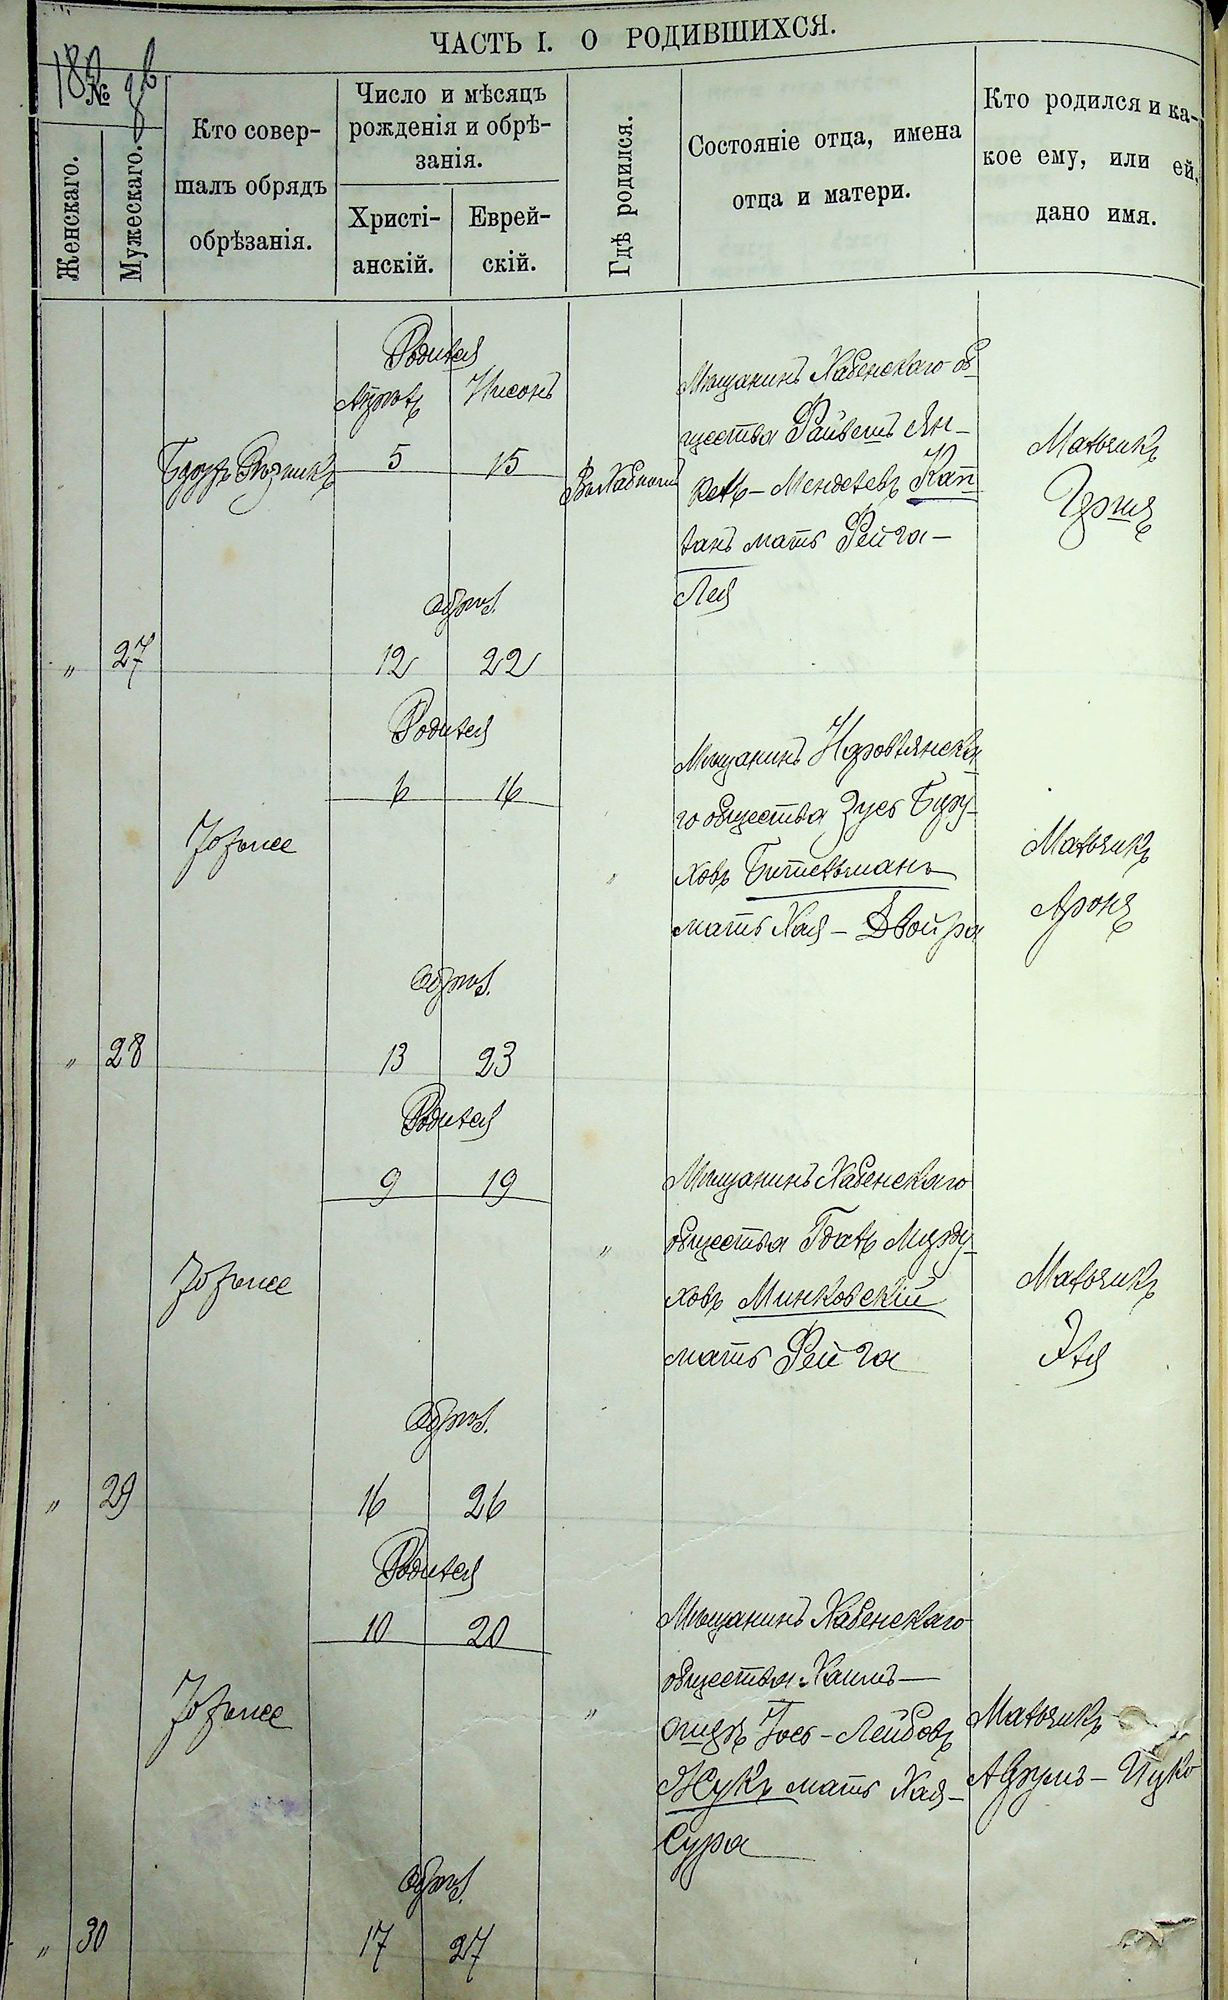 ЧАСТЬ I. О РОДИВШИХСЯ.
№
Женскаго.
Мужескаго.
Кто совер-
шалъ обрядъ
обрѣзанія.
Число и мѣсяцъ
рожденія и обрѣ-
занія.
Христі-
анскій.
Еврей-
скій.
Гдѣ родился.
Состояніе отца, имена
отца и матери.
Кто родился и ка-
кое ему, или ей,
дано имя.
„ 27
Родился
Нисонъ
5 15
Обрѣз.
12 22
Мѣщанинъ Хабенскаго об-
щества Файвешъ Ян-
кель-Менделевъ Кап-
ланъ мать Фейга-
Лея
Мальчикъ
Гершъ
„ 28
Тотъ же
Родился
6 16
Обрѣз.
13 23
„
Мѣщанинъ Наровлянска-
го общества Зусь Бору-
ховъ
мать Хая-Двойра
Мальчикъ
Аронъ
„ 29
Тотъ же
Родился
9 19
Обрѣз.
16 26
„
Мѣщанинъ Хабенскаго
общества Гдаль Морду-
ховъ Минковскій
мать Фейга
Мальчикъ
Эля
„ 30
Тотъ же
Родился
10 20
Обрѣз.
17 27
„
Мѣщанинъ Хабенскаго
общества Хаимъ-
Ошеръ Іось-Лейбовъ
Жукъ мать Хая-
Сура
Мальчикъ
Абрумъ-Ицко